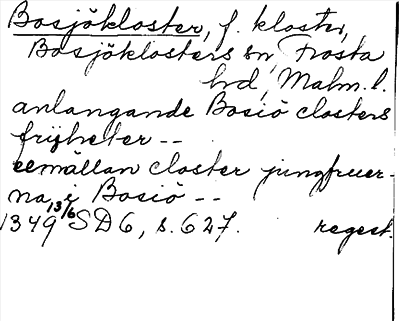 Bosjökloster, f. kloster,
Bosjöklosters sn, Frosta
hd, Malm. l.
anlangande Bosiö closters
frijheter --
eemällan closter jungfruer-
na i Bosiö --
1349 13/6 SD6, s. 627. regest.